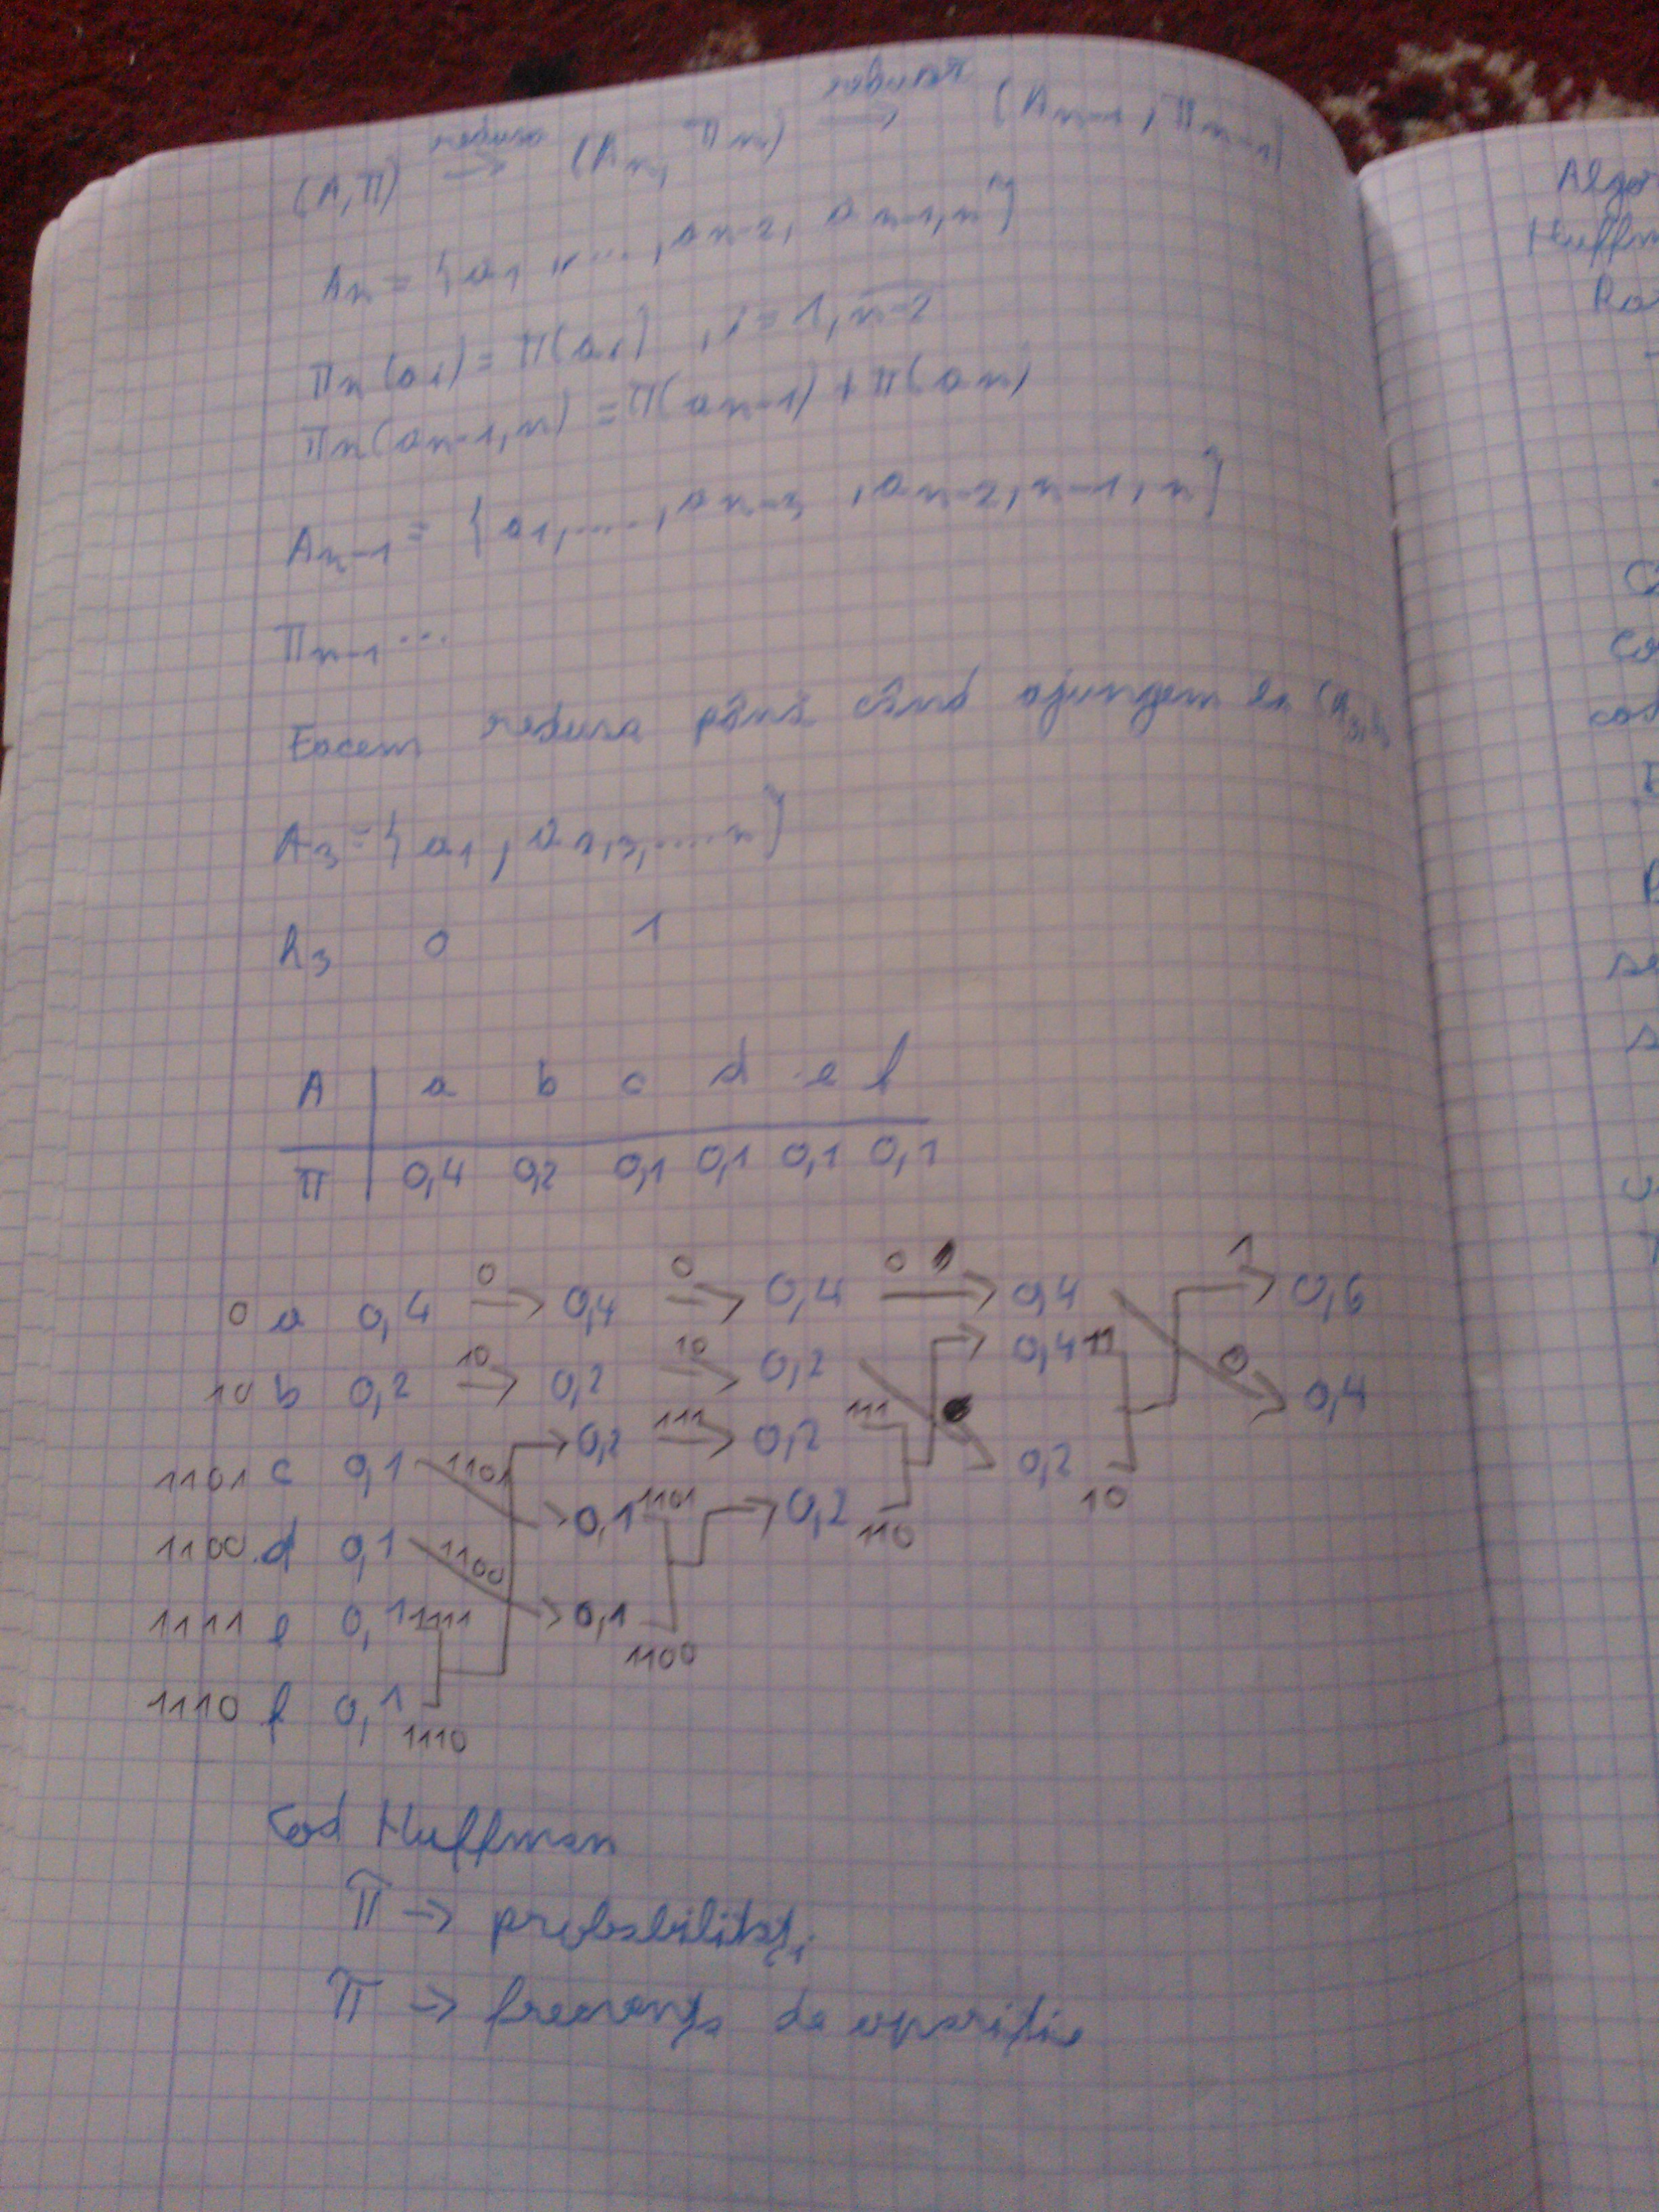 (A,π) → (An, πn) → (An-1, πn-1)
An = {a1, ..., an-2, an-1,n}
πn(ai) = π(ai), i = 1,n-2
πn(an-1,n) = π(an-1) + π(an)
An-1 = {a1, ...., an-3, an-2,n-1,n}
πn-1 ...
Facem redusa până când ajungem la
A3 = {a1, a2,3,....n}
h3 0 1
A a b c d e f
π 0,4 0,2 0,1 0,1 0,1 0,1
0 a 0,4 0 → 0,4 0 → 0,4 0 → 0,4 1 → 0,6
10 b 0,2 10 → 0,2 10 → 0,2 0,4 11 0 0,4
1101 c 0,1 1101 0,2 111 → 0,2 111 0,2 10
1100 d 0,1 1100 0,1 1101 0,2 110
1111 e 0,1 1111 0,1 1100
1110 f 0,1 1110
Cod Huffman
π → probabilități
π → frecvența de apariție